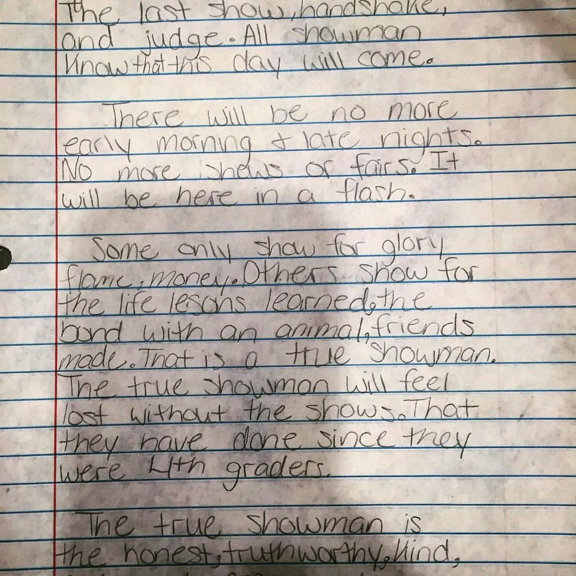 The last show, handshake,
and judge. All showman
know that this day will come.
There will be no more
early morning & late nights.
No more shows or fairs. It
will be here in a flash.
Some only show for glory
flame, money. Others show for
the life lesons learned, the
bond with an animal, friends
made. That is a true showman.
The true showman will feel
lost without the shows. That
they have done since they
were 4th graders.
The true showman is
the honest, truthworthy, kind,